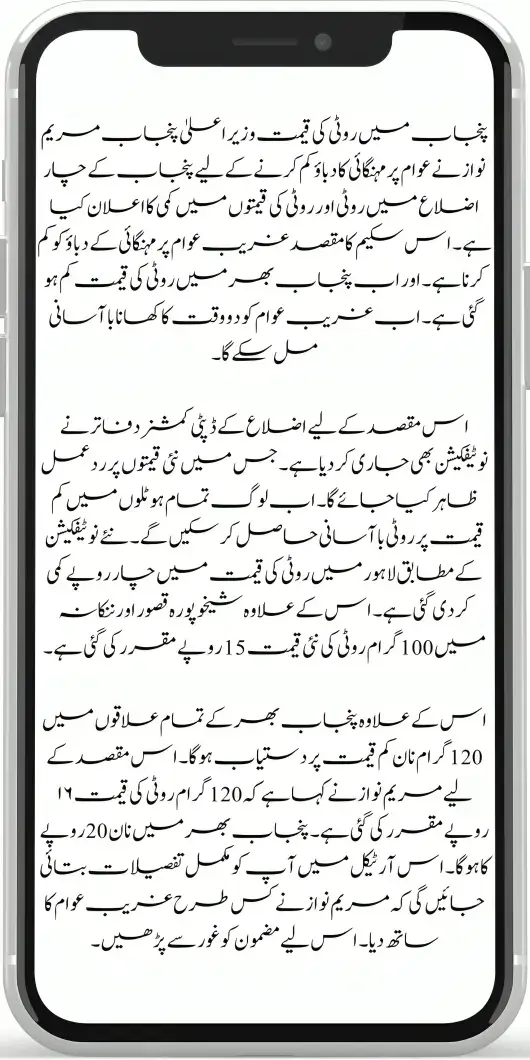 پنجاب میں روٹی کی قیمت وزیر اعلیٰ پنجاب مریم
نواز نے عوام پر مہنگائی کا دباؤ کم کرنے کے لیے پنجاب کے چار
اضلاع میں روٹی اور روٹی کی قیمتوں میں کمی کا اعلان کیا
ہے۔ اس سکیم کا مقصد غریب عوام پر مہنگائی کے دباؤ کو کم
کرنا ہے۔ اور اب پنجاب بھر میں روٹی کی قیمت کم ہو
گئی ہے۔ اب غریب عوام کو دو وقت کا کھانا با آسانی
مل سکے گا۔
اس مقصد کے لیے اضلاع کے ڈپٹی کمشنر دفاتر نے
نوٹیفکیشن بھی جاری کر دیا ہے۔ جس میں نئی قیمتوں پر رد عمل
ظاہر کیا جائے گا۔ اب لوگ تمام ہوٹلوں میں کم
قیمت پر روٹی با آسانی حاصل کر سکیں گے۔ نئے نوٹیفکیشن
کے مطابق لاہور میں روٹی کی قیمت میں چار روپے کمی
کر دی گئی ہے۔ اس کے علاوہ شیخوپورہ قصور اور ننکانہ
میں 100 گرام روٹی کی نئی قیمت 15 روپے مقرر کی گئی ہے۔
اس کے علاوہ پنجاب بھر کے تمام علاقوں میں
120 گرام نان کم قیمت پر دستیاب ہوگا۔ اس مقصد کے
لیے مریم نواز نے کہا ہے کہ 120 گرام روٹی کی قیمت ۱۶
روپے مقرر کی گئی ہے۔ پنجاب بھر میں نان 20 روپے
کا ہوگا۔ اس آرٹیکل میں آپ کو مکمل تفصیلات بتائی
جائیں گی کہ مریم نواز نے کس طرح غریب عوام کا
ساتھ دیا۔ اس لیے مضمون کو غور سے پڑھیں۔